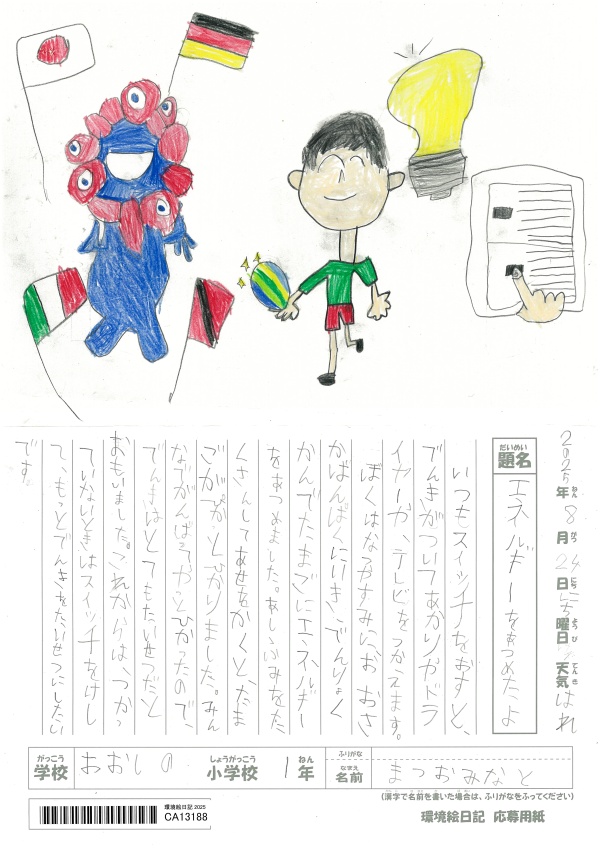 2025年ねん8月がつ24日にち日にち曜ようび日 天気てんき はれ
題名だいめい エネルギーをあつめたよ
いつもスイッチをおすと、
でんきがついてあかりやドラ
イヤーや、テレビをつかえます。
ぼくはなつやすみにおおさ
かばんぱくにいき、でんりょく
かんでたまごにエネルギー
をあつめました。あしぶみをた
くさんしてあせをかくと、たま
ごがやっとひかりました。みん
なでがんばってやっとひかったので、
でんきはとてもたいせつだと
おもいました。これからは、つかっ
ていないときはスイッチをけし
て、もっとでんきをたいせつにしたい
です。
学校がっこう おおしの 小学校しょうがっこう 1年ねん ふりがな 名前なまえ まつおみなと
(漢字で名前を書いた場合は、ふりがなをふってください)
環境絵日記 2025
CA13188
環境絵日記 応募用紙